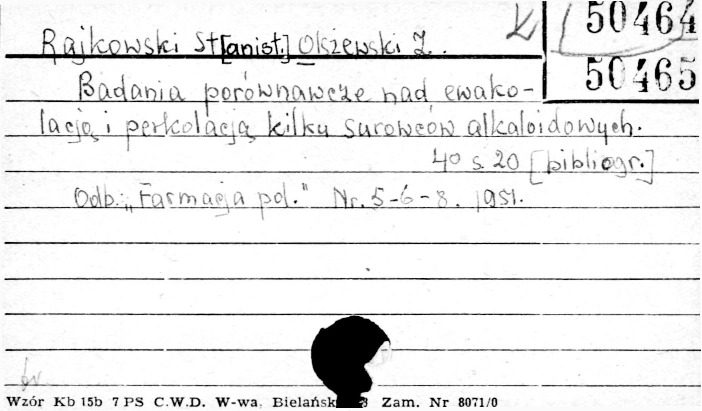 50464
Rajkowski St[anisł.] Olszewski Z.
50465
Badania porównawcze nad ewako-
lacją i perkolacją kilku surowców alkaloidowych.
40 s. 20 [bibliogr.]
Odb. „Farmacja pol." Nr. 5-6-8. 1951.
Wzór Kb 15b 7 PS C.W.D. W-wa, Zam. Nr 8071/0